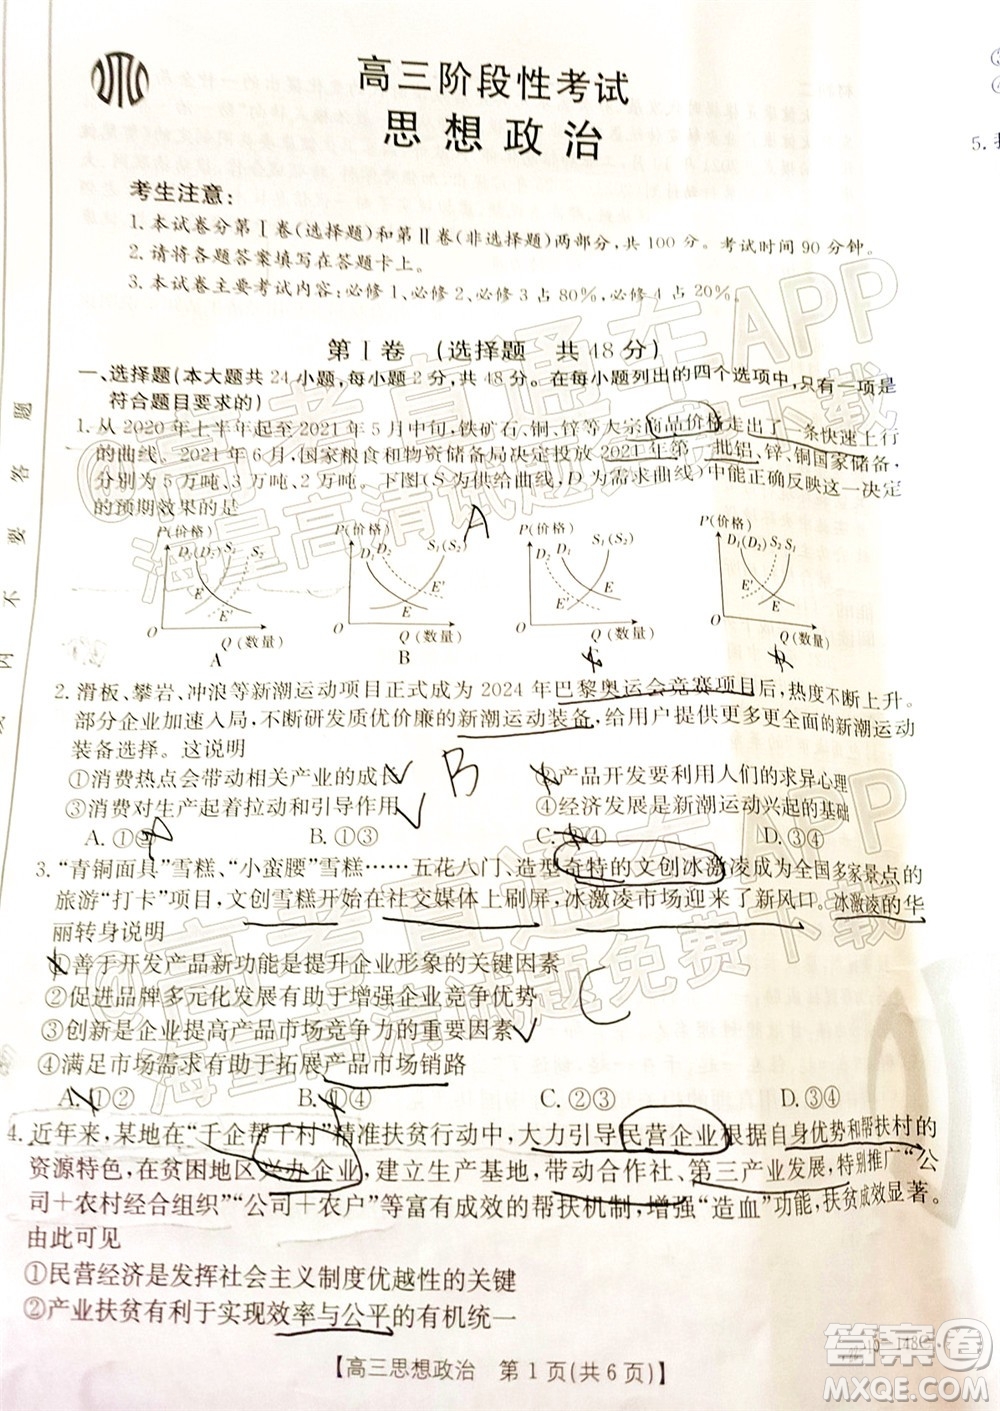 高三阶段性考试
思想政治
考生注意:
1.本试卷分第Ⅰ卷(选择题)和第Ⅱ卷(非选择题)两部分,共100分。考试时间90分钟。
2.请将各题答案填写在答题卡上。
3.本试卷主要考试内容:必修1、必修2、必修3占80%,必修4占20%。
第Ⅰ卷 (选择题 共48分)
一、选择题(本大题共24小题,每小题2分,共48分。在每小题列出的四个选项中,只有一项是
符合题目要求的)
1.从2020年上半年起至2021年5月中旬,铁矿石、铜、锌等大宗商品价格走出了一条快速上升
的曲线。2021年6月,国家粮食和物资储备局决定投放2021年第一批铝、锌、铜国家储备,
分别为5万吨、3万吨、2万吨。下图(S为供给曲线,D为需求曲线)能正确反映这一决定
的预期效果的是
A
P(价格) P(价格) P(价格) P(价格)
D₁(D₂) S₁ S₂
D₁ D₂ S₁(S₂)
D₂ D₁ S₁(S₂)
D₁(D₂) S₂ S₁
E E′
O Q(数量) O Q(数量) O Q(数量) O Q(数量)
A B
2.滑板、攀岩、冲浪等新潮运动项目正式成为2024年巴黎奥运会竞赛项目后,热度不断上升。
部分企业加速入局,不断研发质优价廉的新潮运动装备,给用户提供更多更全面的新潮运动
装备选择。这说明
①消费热点会带动相关产业的成长 B ②产品开发要利用人们的求异心理
③消费对生产起着拉动和引导作用 ④经济发展是新潮运动兴起的基础
A.①② B.①③ C.②④ D.③④
3.“青铜面具”雪糕、“小蛮腰”雪糕……五花八门、造型奇特的文创冰激凌成为全国多家景点的
旅游“打卡”项目,文创雪糕开始在社交媒体上刷屏,冰激凌市场迎来了新风口。冰激凌的华
丽转身说明
①善于开发产品新功能是提升企业形象的关键因素
②促进品牌多元化发展有助于增强企业竞争优势 C
③创新是企业提高产品市场竞争力的重要因素
④满足市场需求有助于拓展产品市场销路
A.①② B.①④ C.②③ D.③④
4.近年来,某地在“千企帮千村”精准扶贫行动中,大力引导民营企业根据自身优势和帮扶村的
资源特色,在贫困地区兴办企业,建立生产基地,带动合作社、第三产业发展,特别推广“公
司+农村经合组织”“公司+农户”等富有成效的帮扶机制,增强“造血”功能,扶贫成效显著。
由此可见
①民营经济是发挥社会主义制度优越性的关键
②产业扶贫有利于实现效率与公平的有机统一
【高三思想政治 第1页(共6页)】
5.
题
答
要
不
内
@高考直通车APP
海量高清试题免费下载
@高考直通车APP
海量高清试题免费下载
答案圈
MXQE.COM